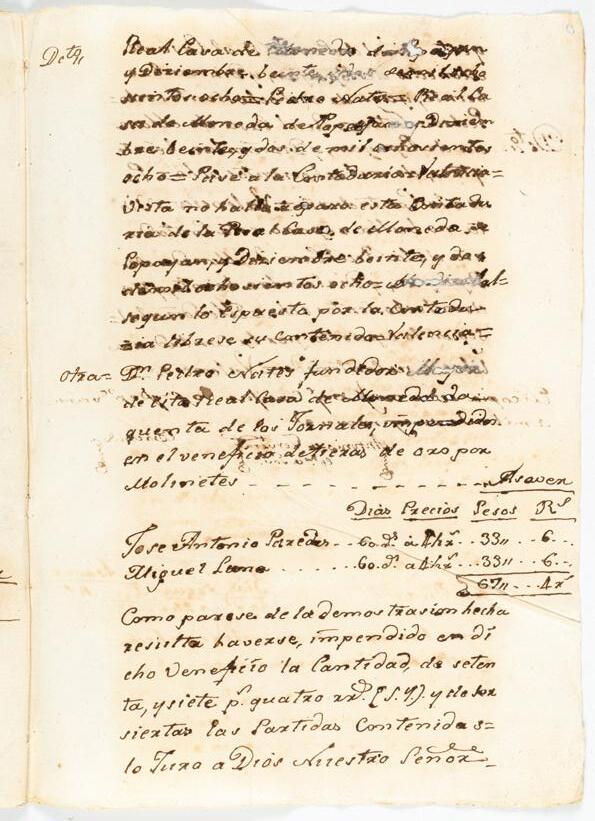 Dcto,,
Real Casa de Moneda de Popayan
y Diziembre beinte y dos de mil ocho
sientos ocho = Pedro Nates = Real Ca
sa de Moneda de Popayan y Diziem
bre beinte, y dos de mil ochosientos
ocho = Pase a la Contaduria = Valencia =
Vista no halla reparo esta Contadu
ria de la Real Casa, de Moneda de
Popayan, y Diziembre beinte, y dos
de mil ochosientos ocho =
segun lo Espuesto por la Contadu
ria librese su contenido = Valencia =
Otra = Dn. Pedro Nates fundidor Mayor
de esta Real Casa de Moneda da
quenta de los Jornales, impendidos
en el veneficio de tieras de oro por
Molinetes - - - - - - - Asaver
Dias Precios Pesos Rs
Jose Antonio Paredes .. 60.ds. a 4½r. .. 33,, .. 6 ..
Miguel Luna ...... 60.ds. a 4½r. .. 33,, .. 6 ..
67,, .. 4r
Como parese de la demostrasion hecha
resulta haverse, impendido en di
cho Veneficio la Cantidad, de seten
ta, y siete ps. quatro rrs. (S.Y.) y de ser
siertas las Partidas Contenidas =
lo Juro a Dios Nuestro Señor -